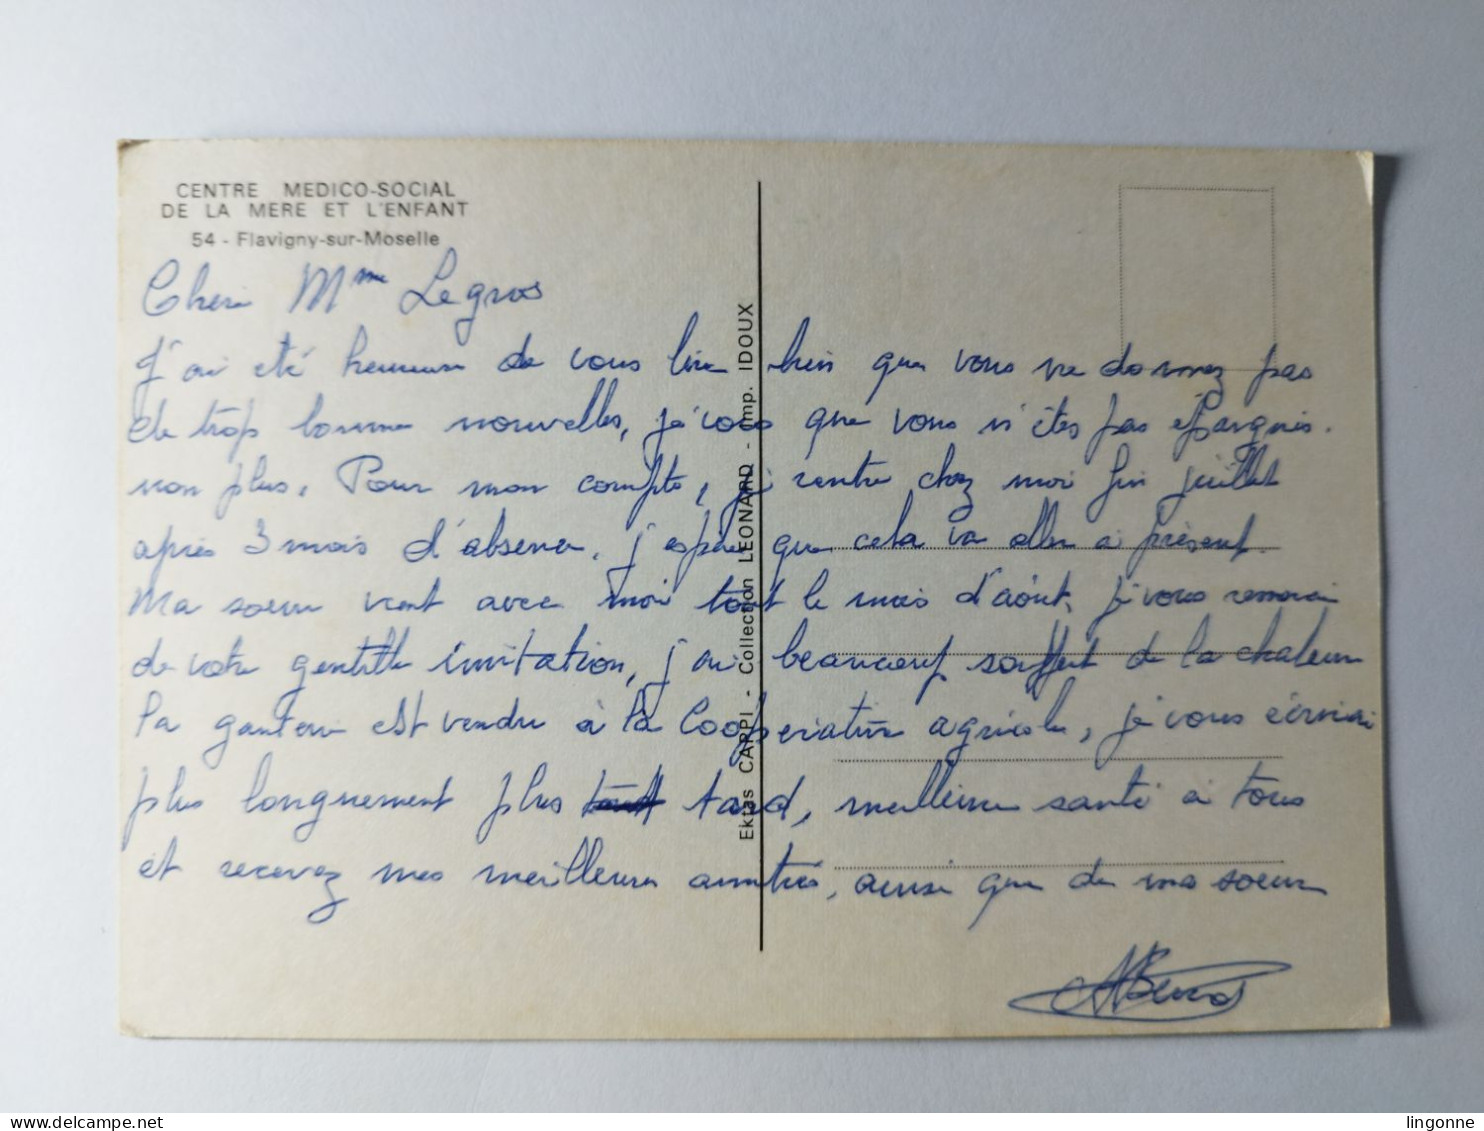 CENTRE MEDICO-SOCIAL
DE LA MERE ET L'ENFANT
54 - Flavigny-sur-Moselle
Cheri Mme Legros
J'ai eté heureuse de vous lire bien que vous ne donnez pas
de trop bonne nouvelles, je vois que vous n'êtes pas épargnés
non plus. Pour mon compte, je rentre chez moi fin juillet
après 3 mois d'absence, j'espère que cela va aller à présent.
Ma soeur vient avec moi tout le mois d'août, je vous remercie
de votre gentille invitation, j'ai beaucoup souffert de la chaleur
la est vendu à la Coopérative agricole, je vous écrirai
plus longuement plus tard, meilleure santé à tous
et recevez mes meilleures amitiés, ainsi que de ma soeur
Ektas CAPPI - Collection LEONARD - Imp. IDOUX
lingonne